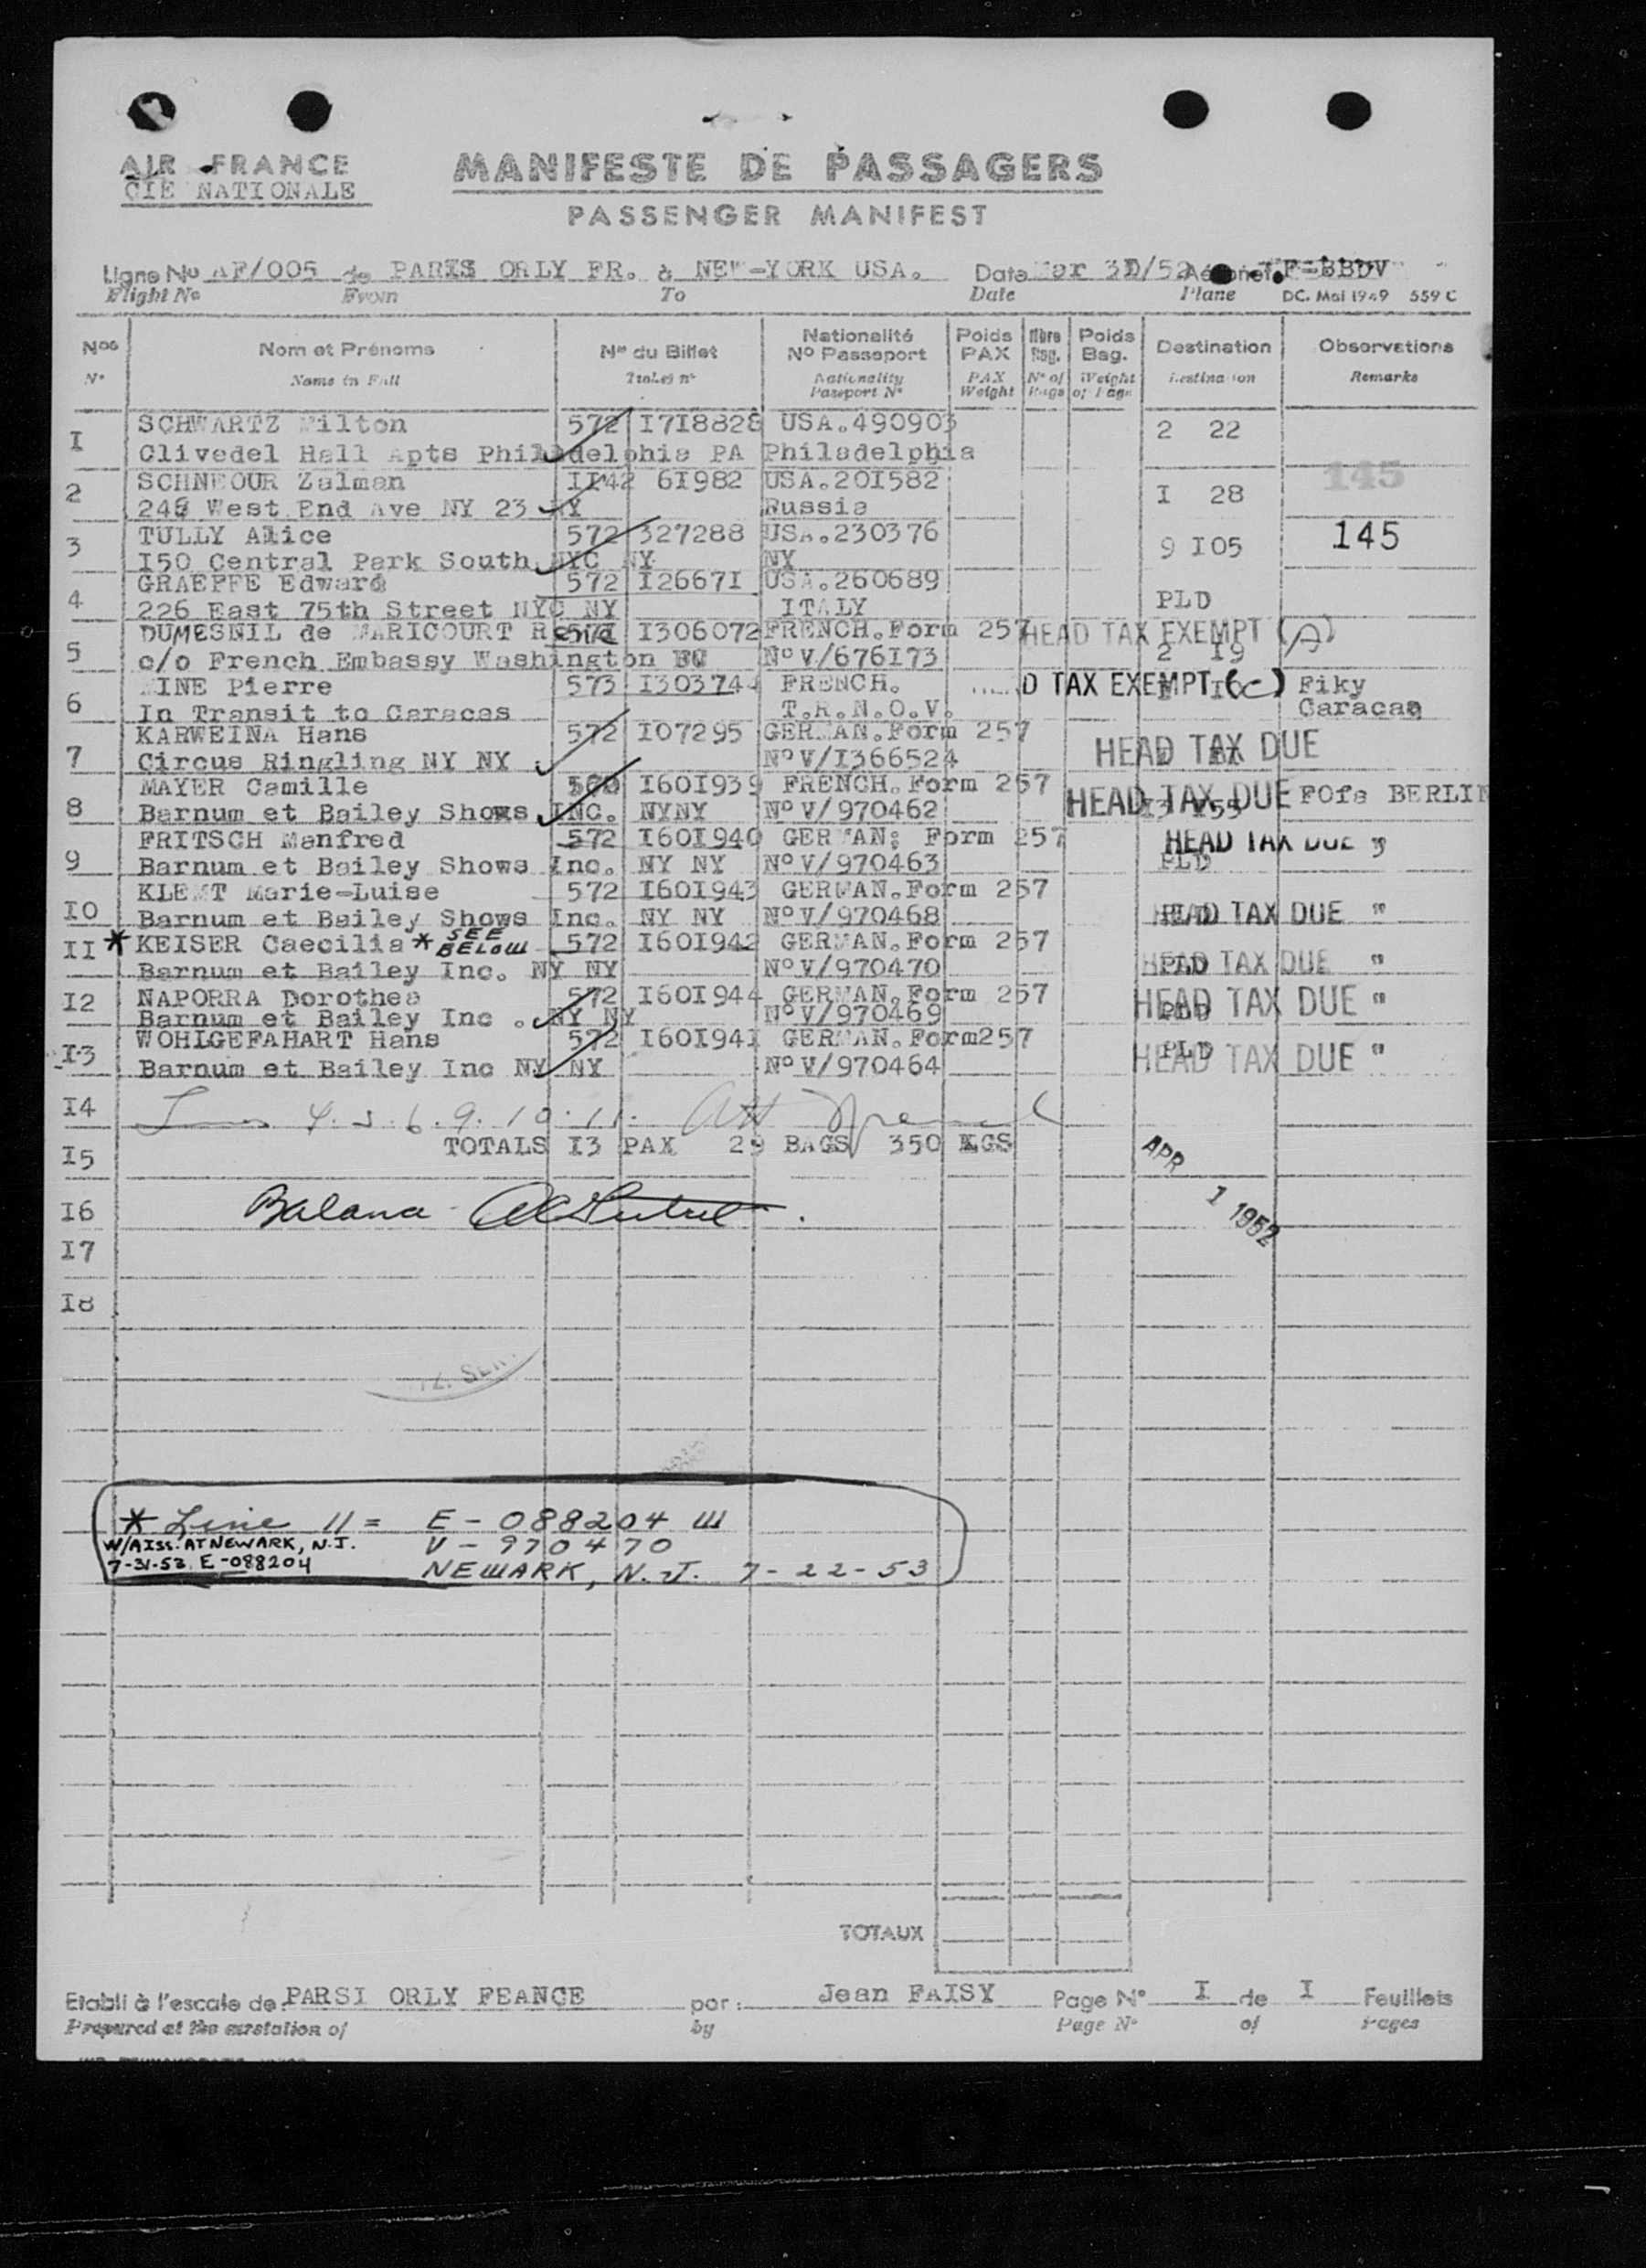 AIR FRANCE
CIE NATIONALE
MANIFESTE DE PASSAGERS
PASSENGER MANIFEST
Ligne No AF/005 de PARIS ORLY FR. à NEW-YORK USA. Date Mar 31/52 Aéronef F-BBDV
Flight No From To Date Plane DC. Mai 1949 559 C
Nos Nom et Prénoms No du Billet Nationalité No Passeport Poids PAX Nbre Bag. Poids Bag. Destination Observations
No Name in Full Ticket no Nationality Passport No PAX Weight No of Bags Weight of Bags Destination Remarks
I SCHWARTZ Milton 572 I7I8828 USA.490903 2 22
Clivedel Hall Apts Philadelphia PA Philadelphia
2 SCHNEOUR Zalman II42 6I982 USA.20I582 I 28 145
248 West End Ave NY 23 NY Russia
3 TULLY Alice 572 327288 USA.230376 9 I05 145
I50 Central Park South NYC NY NY
4 GRAEFFE Edward 572 I2667I USA.260689 PLD
226 East 75th Street NYC NY ITALY
5 DUMESNIL de MARICOURT 572 I306072 FRENCH.Form 257 HEAD TAX EXEMPT (A) 2 I9
c/o French Embassy Washington No V/676I73
6 MINE Pierre 573 I303744 FRENCH. HEAD TAX EXEMPT (C) Fiky
In Transit to Caracas T.R.N.O.V. Caracas
7 KARWEINA Hans 572 I07295 GERMAN.Form 257 HEAD TAX DUE
Circus Ringling NY NY No V/I366524
8 MAYER Camille 560 I60I939 FRENCH.Form 257 HEAD TAX DUE FOfa BERLIN
Barnum et Bailey Shows INC. NYNY No V/970462 I3 I55
9 FRITSCH Manfred 572 I60I940 GERMAN: Form 257 HEAD TAX DUE "
Barnum et Bailey Shows Inc. NY NY No V/970463 PLD
IO KLEMT Marie-Luise 572 I60I943 GERMAN.Form 257
Barnum et Bailey Shows Inc. NY NY No V/970468 PLD HEAD TAX DUE "
II * KEISER Caecilia * SEE BELOW 572 I60I942 GERMAN.Form 257
Barnum et Bailey Inc. NY NY No V/970470 PLD HEAD TAX DUE "
I2 NAPORRA Dorothea 572 I60I944 GERMAN.Form 257 HEAD TAX DUE "
Barnum et Bailey Inc . NY NY No V/970469 PLD
I3 WOHIGEFAHART Hans 572 I60I941 GERMAN.Form257 PLD HEAD TAX DUE "
Barnum et Bailey Inc NY NY No V/970464
I4 4.5.6.9.10.11.
I5 TOTALS I3 PAX 29 BAGS 350 KGS APR 1 1952
I6
I7
I8
* Line 11 = E - 088204 W
W/A ISS. AT NEWARK, N.J. V - 970470
7-31-53 E-088204 NEWARK, N.J. 7-22-53
TOTAUX
Etabli à l'escale de PARSI ORLY FEANCE par: Jean FAISY Page No I de I Feuillets
Prepared at the airstation of by Page No of Pages